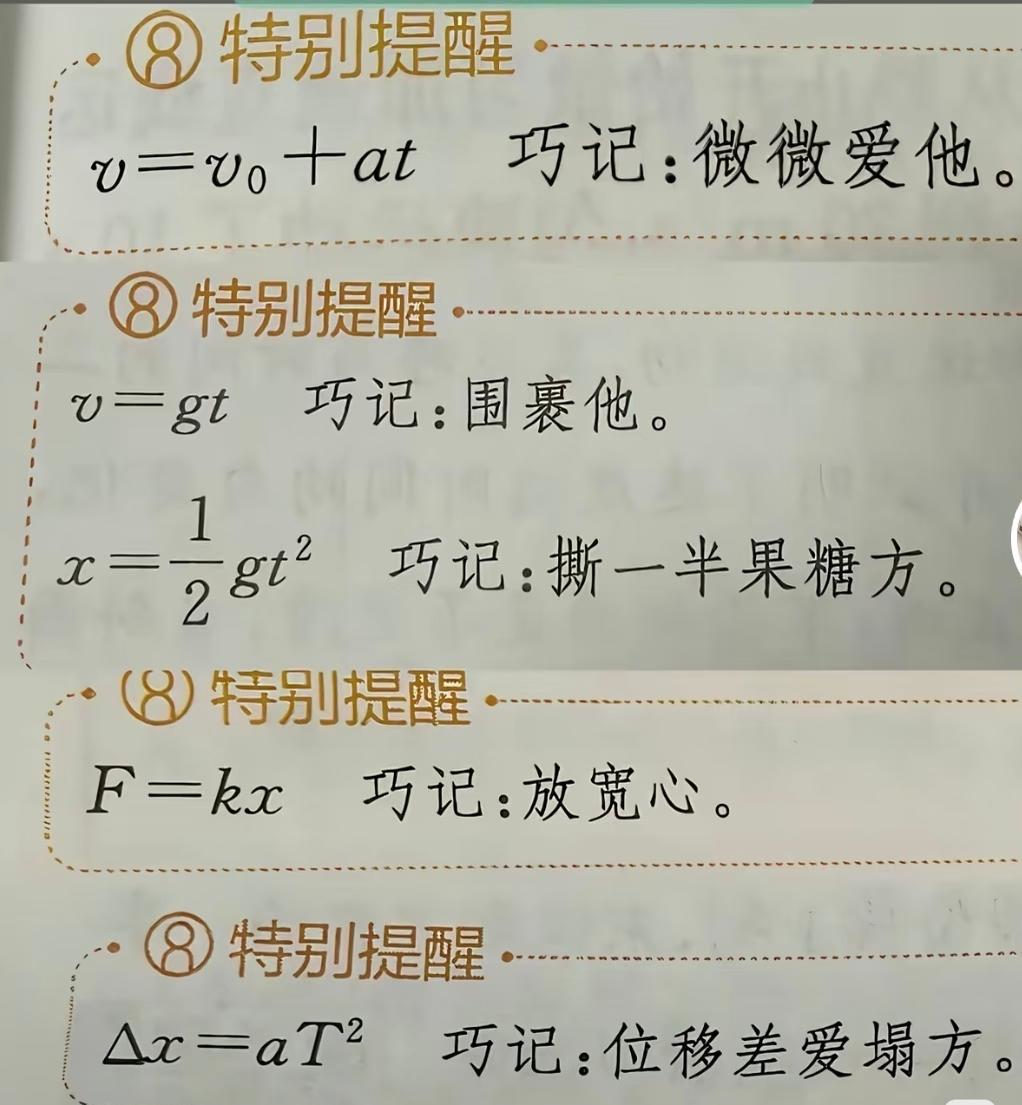 ⑧ 特别提醒
v=v₀+at 巧记:微微爱他。
⑧ 特别提醒
v=gt 巧记:围裹他。
x=1/2gt² 巧记:撕一半果糖方。
⑧ 特别提醒
F=kx 巧记:放宽心。
⑧ 特别提醒
Δx=aT² 巧记:位移差爱塌方。